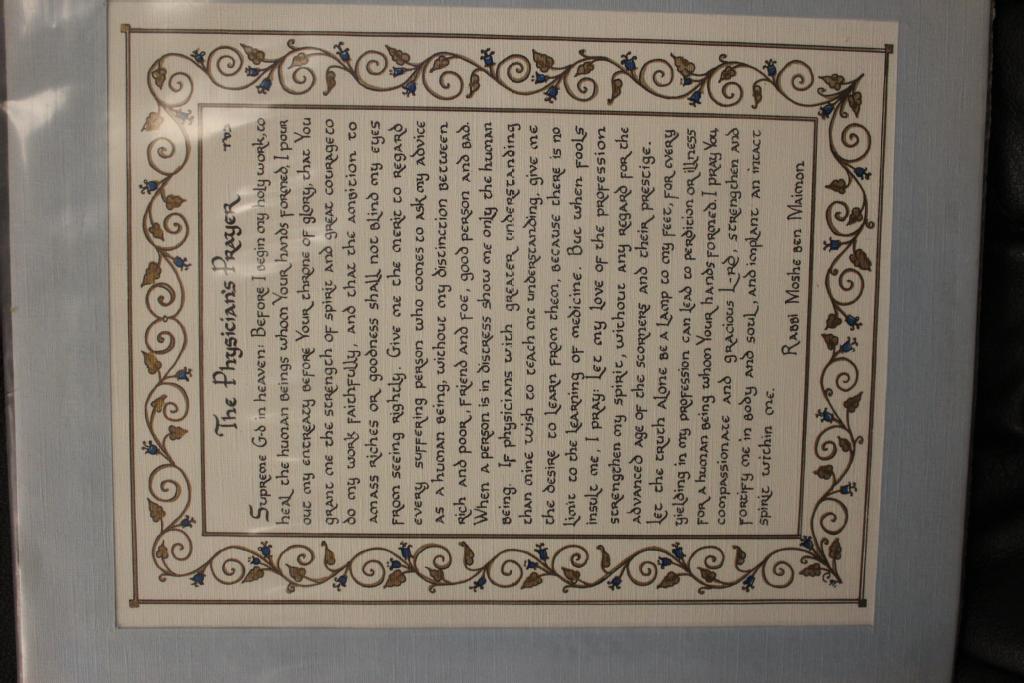 בס"ד
The Physician's Prayer
Supreme G-d in heaven: Before I begin my holy work, to
heal the human beings whom Your hands formed, I pour
out my entreaty before Your throne of glory, that You
grant me the strength of spirit and great courage to
do my work faithfully, and that the ambition to
amass riches or goodness shall not blind my eyes
from seeing rightly. Give me the merit to regard
every suffering person who comes to ask my advice
as a human being, without my distinction between
rich and poor, friend and foe, good person and bad.
When a person is in distress show me only the human
being. If physicians with greater understanding
than mine wish to teach me understanding, give me
the desire to learn from them, because there is no
limit to the learning of medicine. But when fools
insult me, I pray: Let my love of the profession
strengthen my spirit, without any regard for the
advanced age of the scorners and their prestige.
Let the truth alone be a lamp to my feet, for every
yielding in my profession can lead to perdition or illness
for a human being whom Your hands formed. I pray You,
compassionate and gracious L-rd, strengthen and
fortify me in body and soul, and implant an intact
spirit within me.
Rabbi Moshe ben Maimon